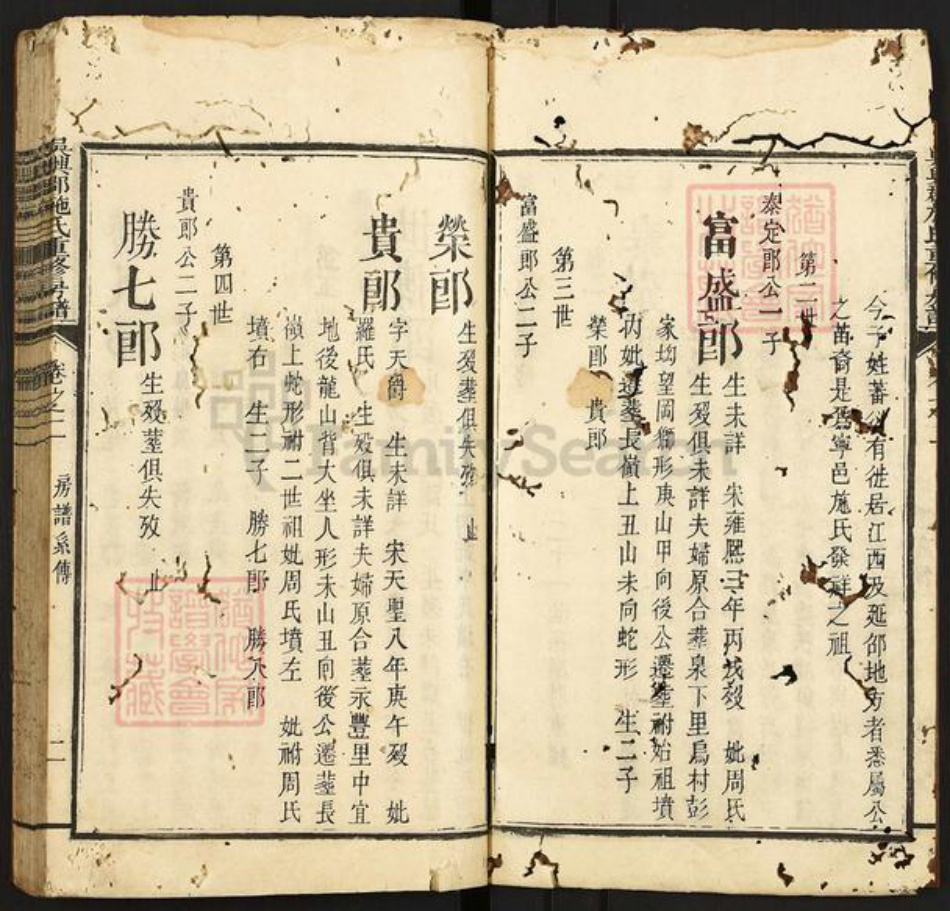 今子姓蕃衍有徙居江西及延邵地方者悉屬公
之苗裔是爲寧邑施氏發祥之祖
第二世
泰定郎公一子
富盛郎 生未詳 宋雍熙三年丙戌歿 妣周氏
生歿俱未詳夫婦原合葬泉下里烏村彭
家坳望岡獅形庚山甲向後公遷葬祔始祖墳
丙妣遷葬長嶺上丑山未向蛇形 生二子
榮郎 貴郎
第三世
富盛郎公二子
榮郎 生歿葬俱失攷 止
貴郎 字天爵 生未詳 宋天聖八年庚午歿 妣
羅氏 生歿俱未詳夫婦原合葬永豐里中宜
地後龍山背大坐人形未山丑向後公遷葬長
嶺上蛇形祔二世祖妣周氏墳左 妣祔周氏
墳右 生二子 勝七郎 勝八郎
第四世
貴郎公二子
勝七郎 生歿葬俱失攷 止
吳興郡施氏重修房譜 卷之二 房譜系傳 二
FamilySearch